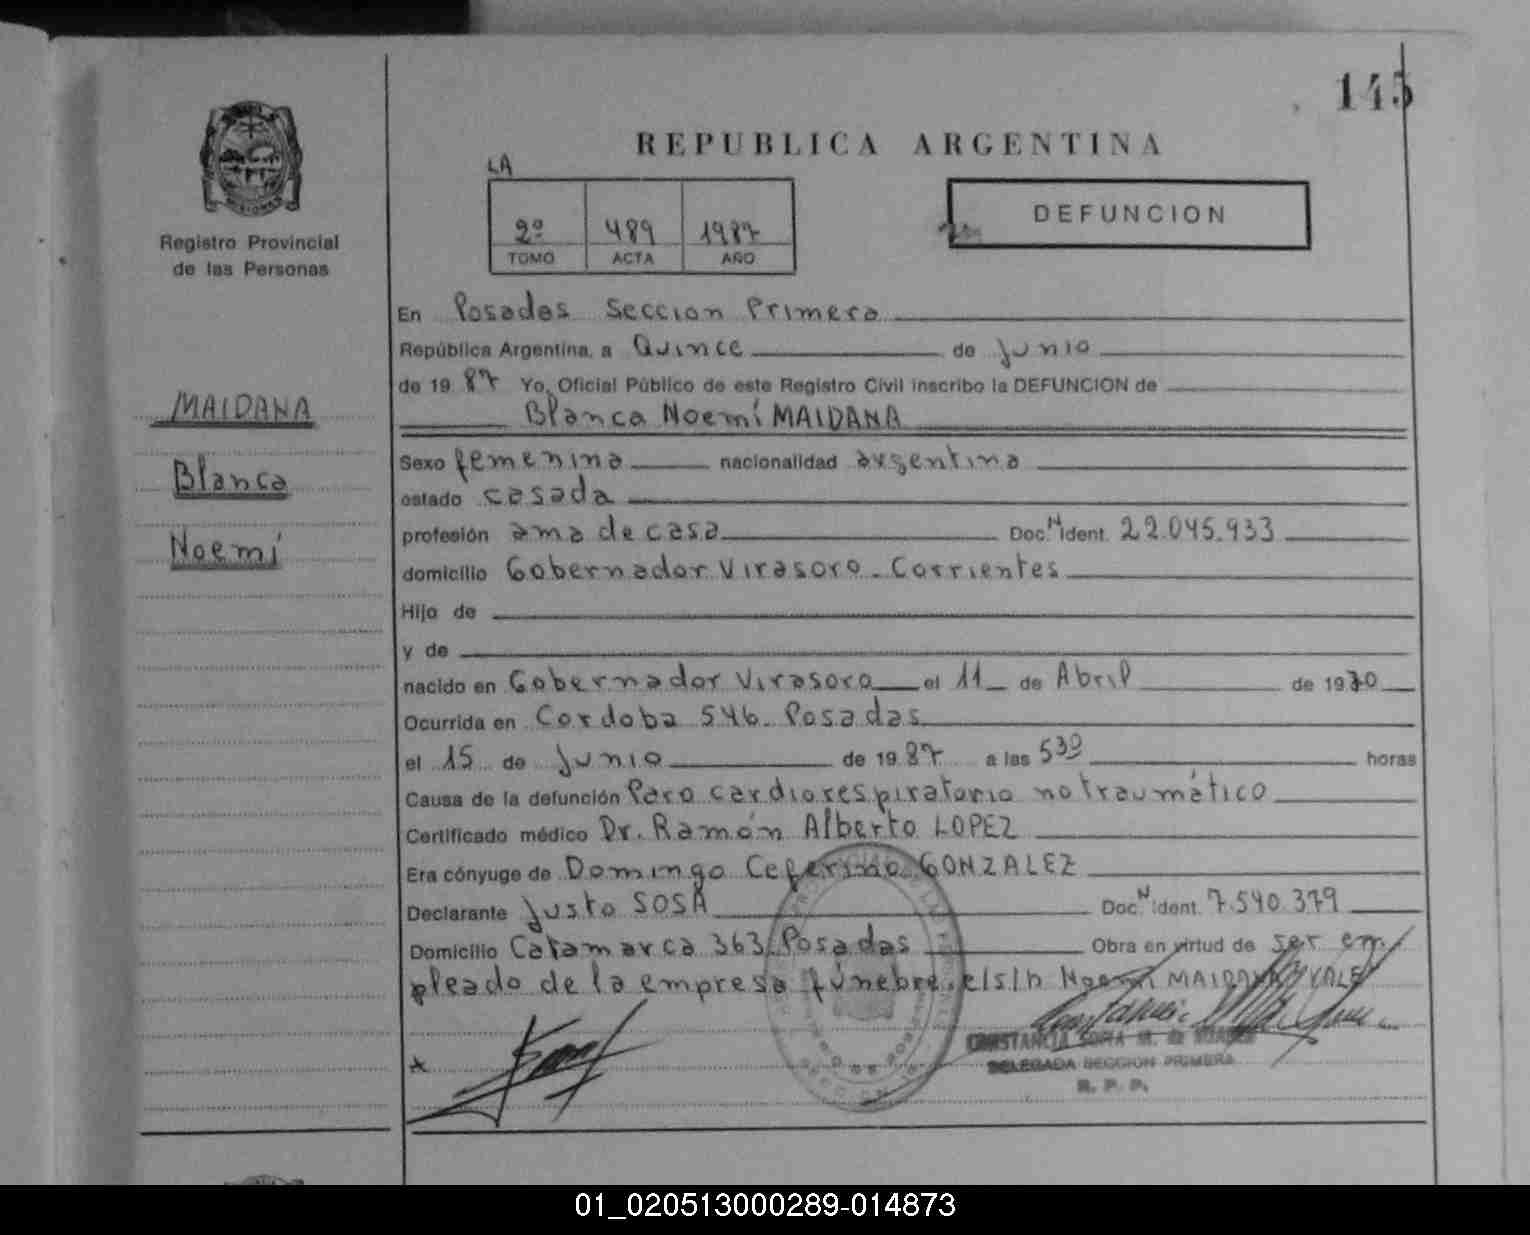 145
REPUBLICA ARGENTINA
LA
2º 489 1987
TOMO ACTA AÑO
DEFUNCION
MISIONES
Registro Provincial
de las Personas
MAIDANA
Blanca
Noemí
En Posadas Sección Primera
República Argentina, a Quince de junio
de 19 87 Yo, Oficial Público de este Registro Civil inscribo la DEFUNCION de
Blanca Noemí MAIDANA
Sexo femenina nacionalidad argentina
estado casada
profesión ama de casa Doc. N Ident. 22.045.933
domicilio Gobernador Virasoro - Corrientes
Hijo de
y de
nacido en Gobernador Virasoro el 11 de Abril de 1970
Ocurrida en Cordoba 546 - Posadas
el 15 de junio de 19 87 a las 530 horas
Causa de la defunción Paro cardiorespiratorio no traumático
Certificado médico Dr. Ramón Alberto LOPEZ
Era cónyuge de Domingo Ceferino GONZALEZ
Declarante Justo SOSA Doc. N Ident. 7.540.379
Domicilio Catamarca 363 Posadas Obra en virtud de ser em
pleado de la empresa fúnebre. e/s/n Noemí MAIDANA VALE
CONSTANCIA SOFIA M. de
DELEGADA SECCION PRIMERA
R. P. P.
01_020513000289-014873